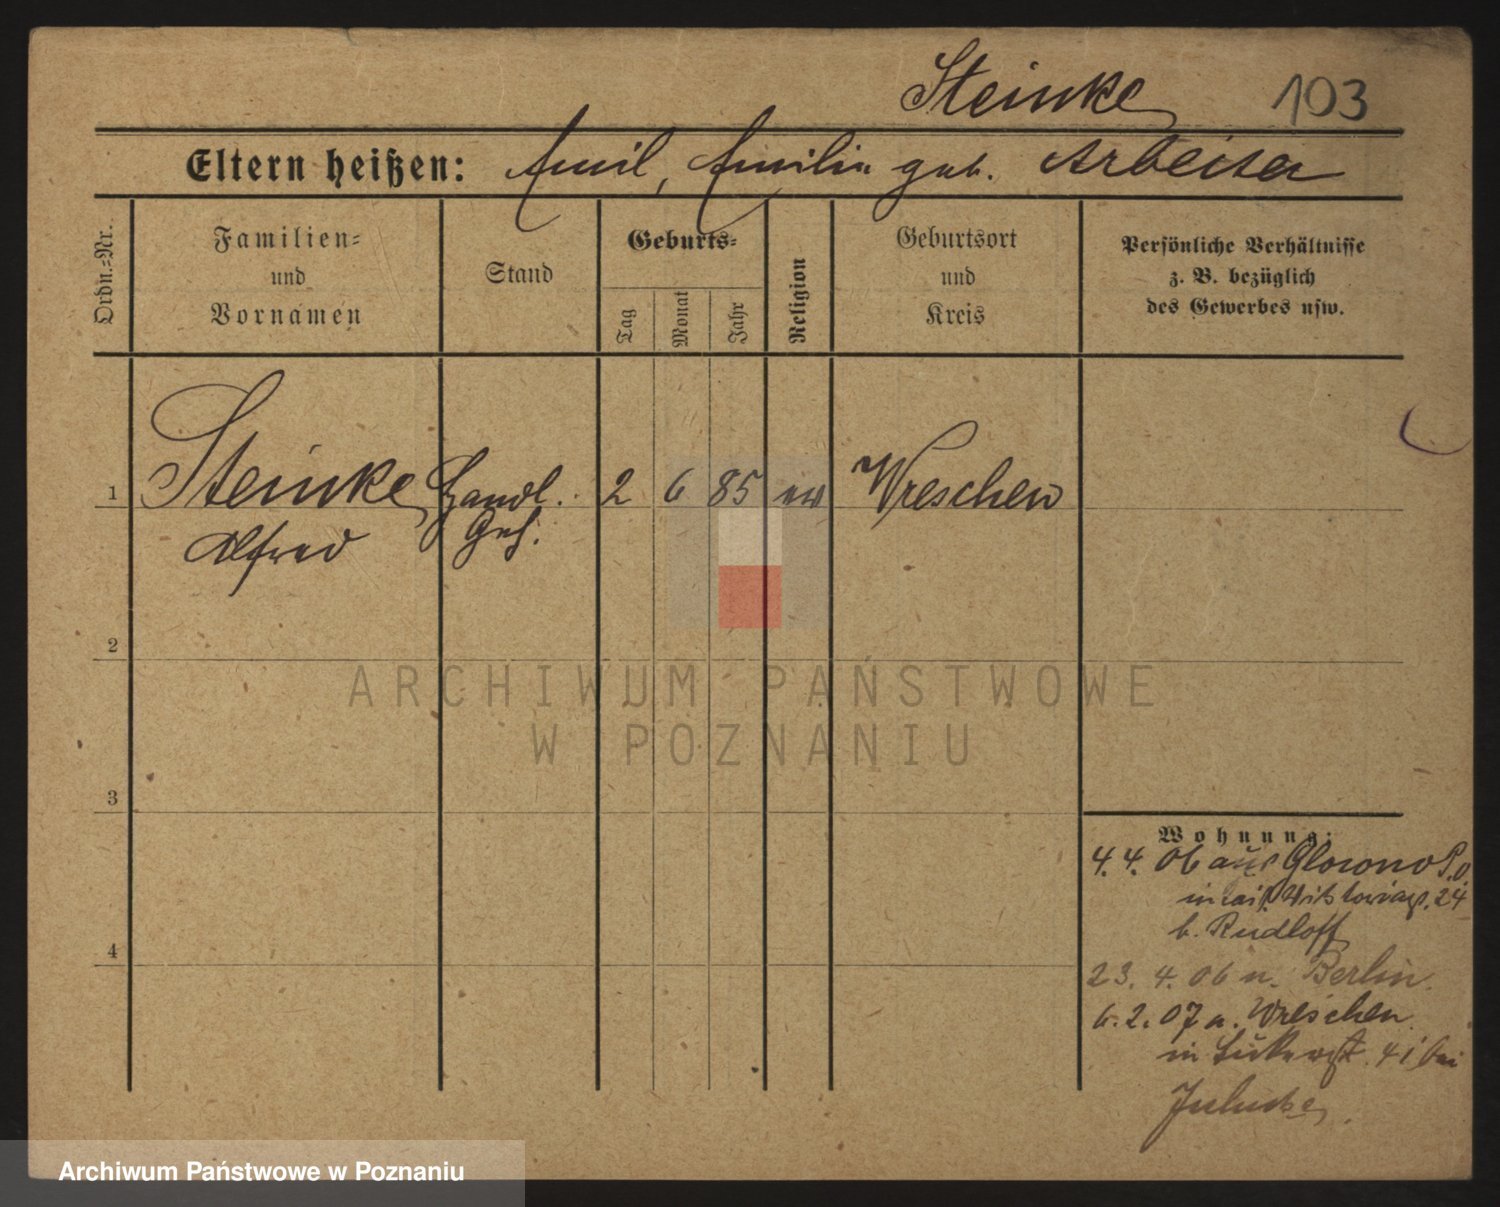 Steinke 103
Eltern heißen: Emil, Emilie geb. Arbeiter
Ordn.-Nr.
Familien-
und
Vornamen
Stand
Geburts-
Tag
Monat
Jahr
Religion
Geburtsort
und
Kreis
Persönliche Verhältnisse
z. B. bezüglich
des Gewerbes usw.
1 Steinke Handl. 2 6 85 ev Wreschen
Alfred Geh.
2
3
4
Wohnung:
4. 4. 06 aus Glowno P.O
in 24
b. Rudloff
23. 4. 06 n. Berlin.
6. 2. 07 a. Wreschen
in 41 bei
ARCHIWUM PAŃSTWOWE
W POZNANIU
Archiwum Państwowe w Poznaniu